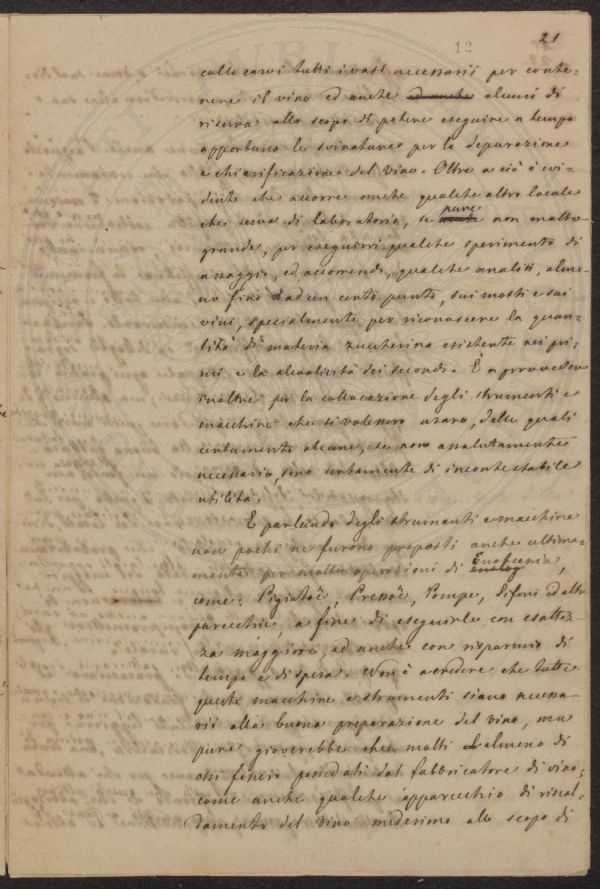 12
21
collocarvi tutti i vasi necessarii per conte-
nere il vino ed anche ed anche alcuni di
riserva allo scopo di potere eseguire a tempo
opportuno le svinature per la depurazione
e chiarificazione del vino. Oltre a ciò è evi-
dente che occorre anche qualche altro locale
che serva di laboratorio, se pure non molto
grande, per eseguirvi qualche sperimento di
assaggio, ed occorrendo, qualche analisi, alme-
no fino ad un certo punto, sui mosti e sui
vini, specialmente per riconoscere la quan-
tità di materia zuccherina esistente nei pri-
mi e la alcoolicità dei secondi. È a provvedere
inoltre per la collocazione degli strumenti e
macchine che si volessero usare, delle quali
certamente alcune, se non assolutamente
necessarie, sono certamente di incontestabile
utilità.
E parlando degli strumenti e macchine
non pochi ne furono proposti anche ultima-
mente per molte operazioni di Enotecnia,
come: Pigiatoi, Pressoi, Pompe, Sifoni ed altri
parecchi, a fine di eseguirle con esattez-
za maggiore, ed anche con risparmio di
tempo e di spesa. Non è a credere che tutte
queste macchine e strumenti siano necessa-
rii alla buona preparazione del vino, ma
pure gioverebbe che molti almeno di
essi fossero posseduti dal fabbricatore di vino,
come anche qualche apparecchio di riscal-
damento del vino medesimo allo scopo di